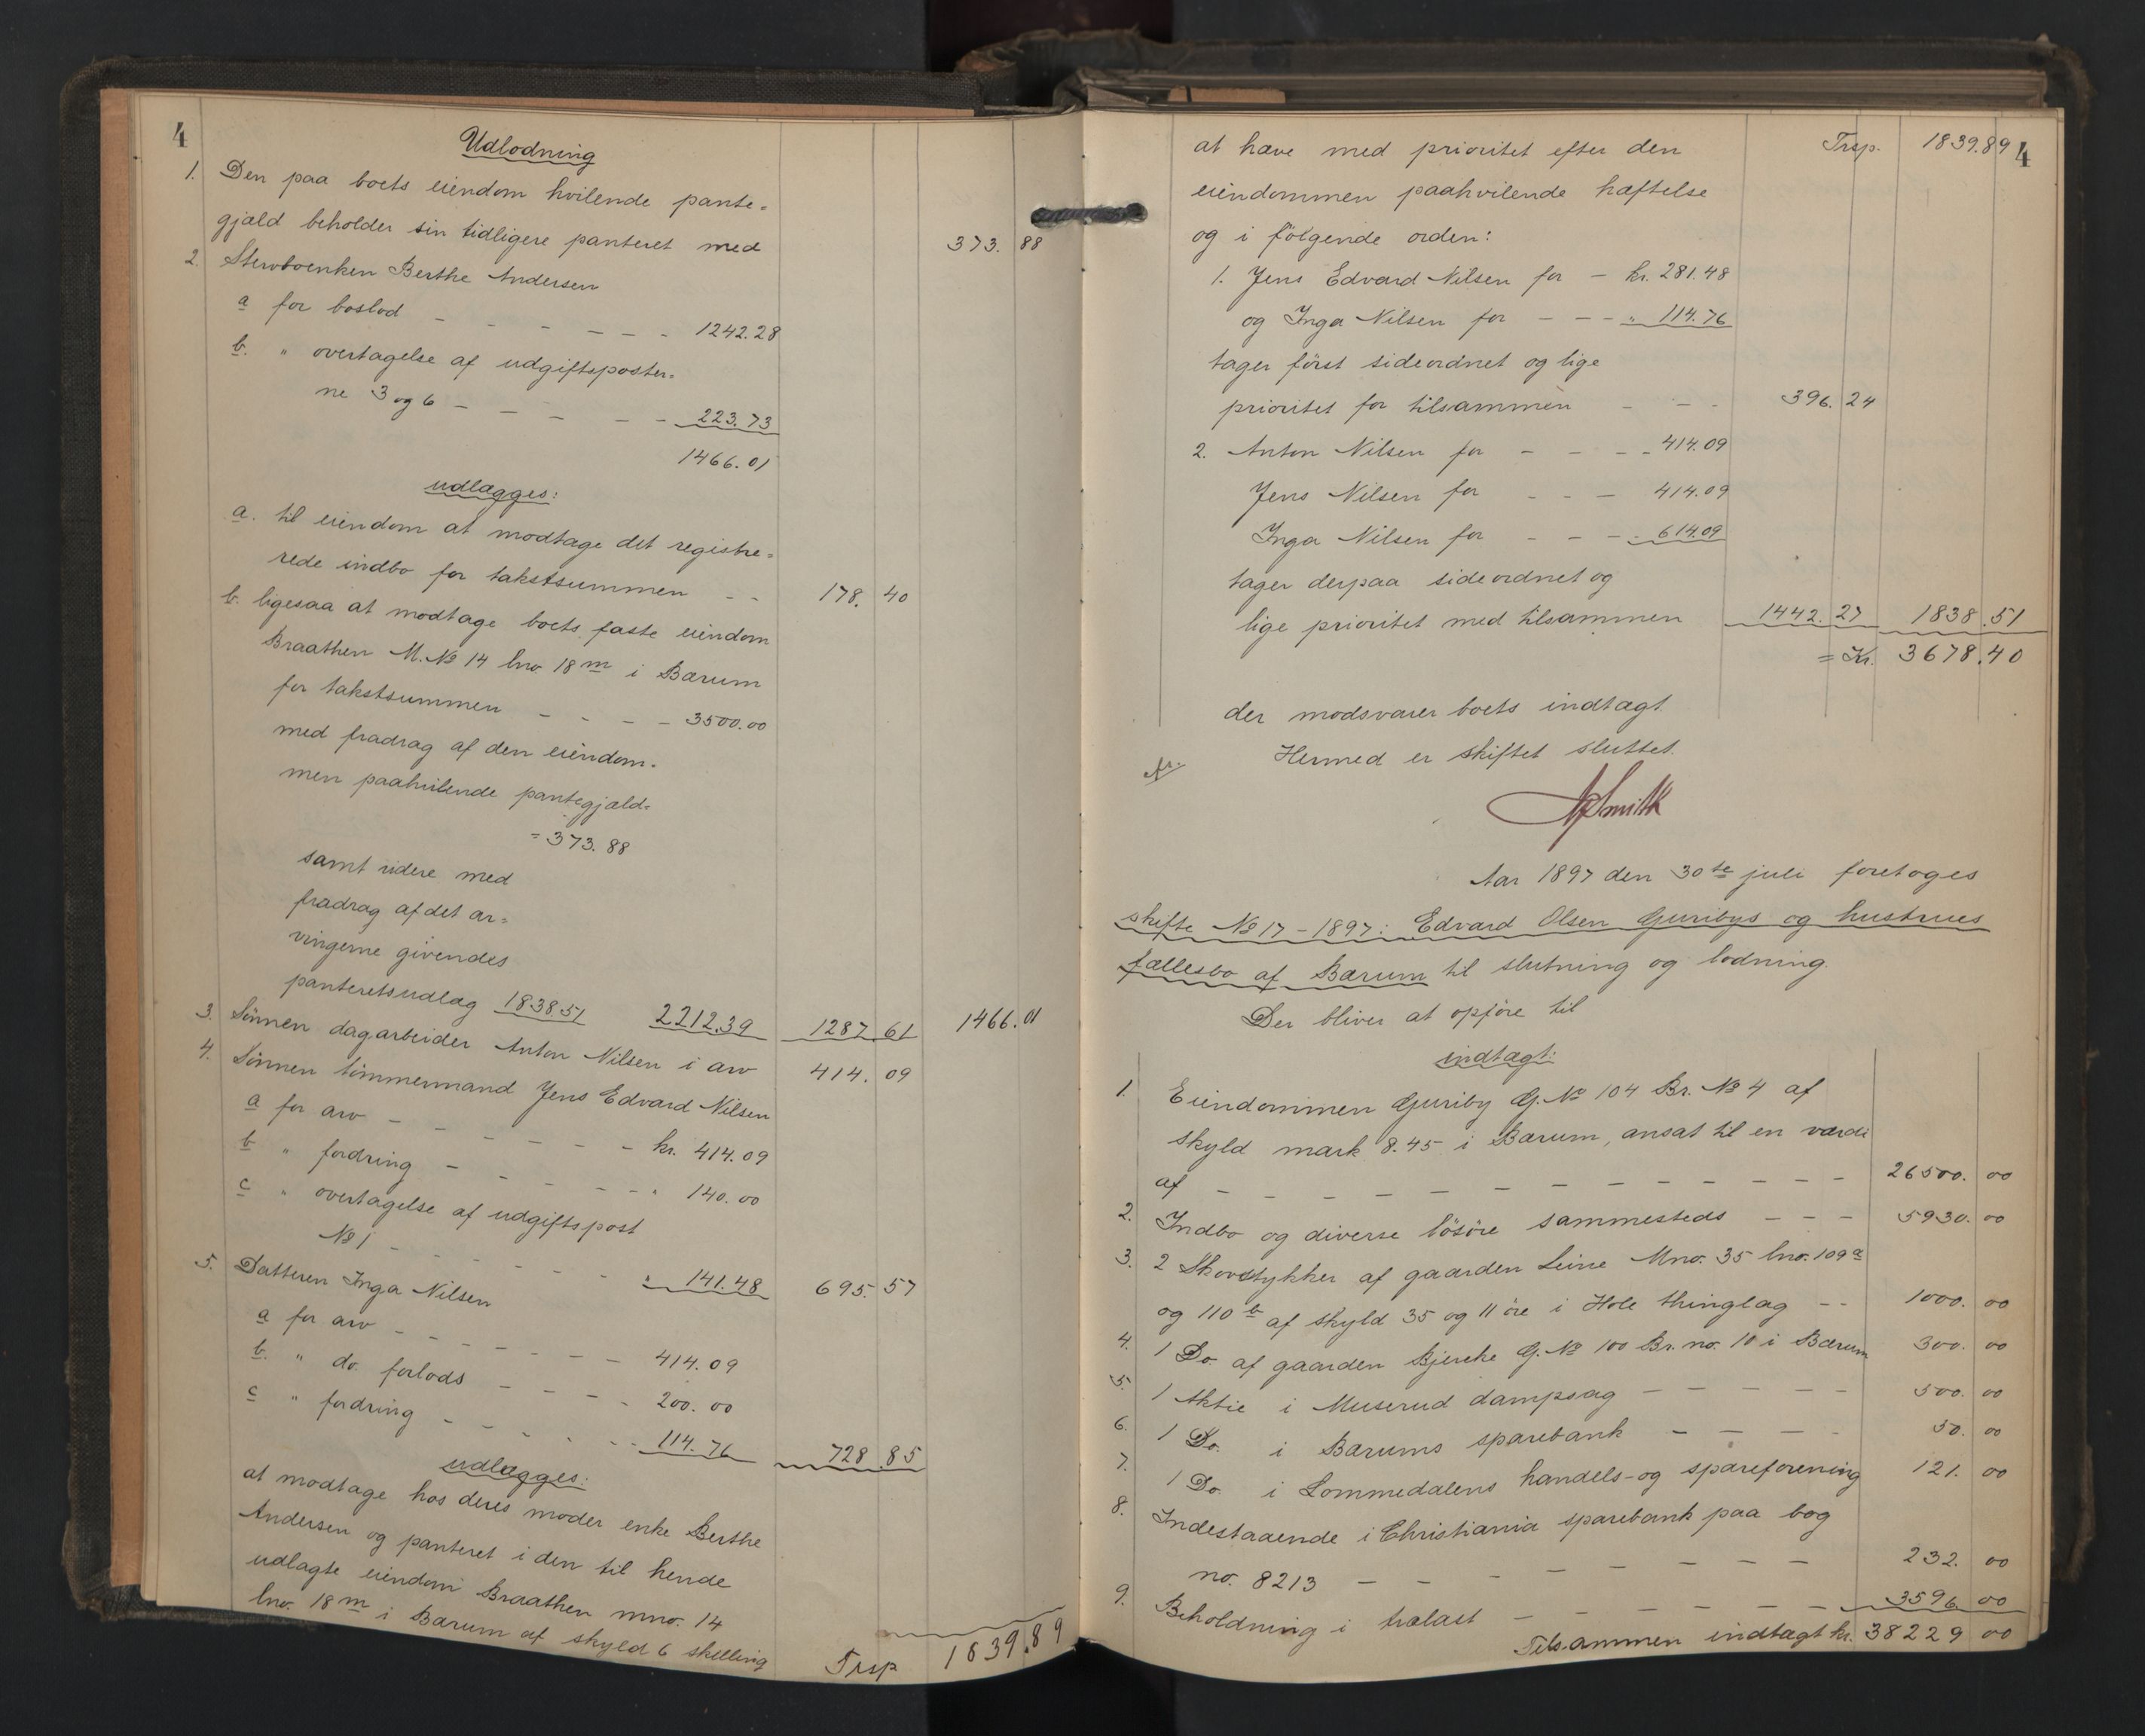 4
Udlodning
1. Den paa boets eiendom hvilende pante-
gjæld beholder sin tidligere panteret med 373. 88
2. Stervboenken Berthe Andersen
a for boslod - - - - - - 1242.28
b. " overtagelse af udgiftsposter-
ne 3 og 6 - - - - - 223.73
1466.01
udlægges:
a. til eiendom at modtage det registre-
rede indbo for takstsummen - - 178. 40
b. ligesaa at modtage boets faste eiendom
Braathen M. № 14 lno. 18 m i Bærum
for takstsummen - - - - 3500.00
med fradrag af den eiendom-
men paahvilende pantegjæld-
= 373.88
samt videre med
fradrag af det ar-
vingerne givendes
panteretsudlæg 1838 51 2212.39 1287 61 1466.01
3. Sönnen dagarbeider Anton Nilsen i arv 414. 09
4. Sönnen tömmermand Jens Edvard Nilsen
a for arv - - - - - - - kr. 414.09
b " fordring - - - - - - " 140.00
c " overtagelse af udgiftspost
№ 1 - - - - - - " 141.48 695. 57
5. Datteren Inga Nilsen
a for arv - - - - - - 414.09
b. " do. forlods - - - - 200.00
c " fordring - - - - - - 114.76 728.85
udlægges:
at modtage hos deres moder enke Berthe
Andersen og panteret i den til hende
udlagte eiendom Braathen mno. 14
lno. 18 m i Bærum af skyld 6 skilling Trsp 1839.89
4
at have med prioritet efter den Trsp. 1839.89
eiendommen paahvilende hæftelse
og i fölgende orden:
1. Jens Edvard Nilsen for - kr. 281.48
og Inga Nilsen for - - - " 114.76
tager först sideordnet og lige
prioritet for tilsammen - - - 396. 24
2. Anton Nilsen for - - - - 414.09
Jens Nilsen for - - - 414.09
Inga Nilsen for - - - - 614.09
tager derpaa sideordnet og
lige prioritet med tilsammen 1442. 27 1838.51
= Kr. 3678.40
der modsvarer boets indtægt.
Hermed er skiftet sluttet.
Smith
Aar 1897 den 30te juli foretoges
skifte № 17 - 1897: Edvard Olsen Guribys og hustrues
fællesbo af Bærum til slutning og lodning.
Der bliver at opföre til
indtægt:
1. Eiendommen Guriby G. № 104 Br. № 4 af
skyld mark 8.45 i Bærum, ansat til en værdi
af - - - - - - - - - - - - 26500. 00
2. Indbo og diverse lösöre sammesteds - - - 5930. 00
3. 2 Skovstykker af gaarden Leine Mno. 35 lno. 109 a
og 110 b af skyld 35 og 11 öre i Hole thinglag - - 1000. 00
4. 1 Do. af gaarden Bjerke G. № 100 Br. no. 10 i Bærum 300. 00
5. 1 Aktie i Muserud dampsag - - - - - 500. 00
6. 1 Do. i Bærums sparebank - - - - 50. 00
7. 1 Do. i Lommedalens handels- og spareforening 121. 00
8. Indestaaende i Christiania sparebank paa bog
no. 8213 - - - - - - - - 232. 00
9. Beholdning i trælast - - - - - - - 3596. 00
Tilsammen indtægt kr. 38229 00